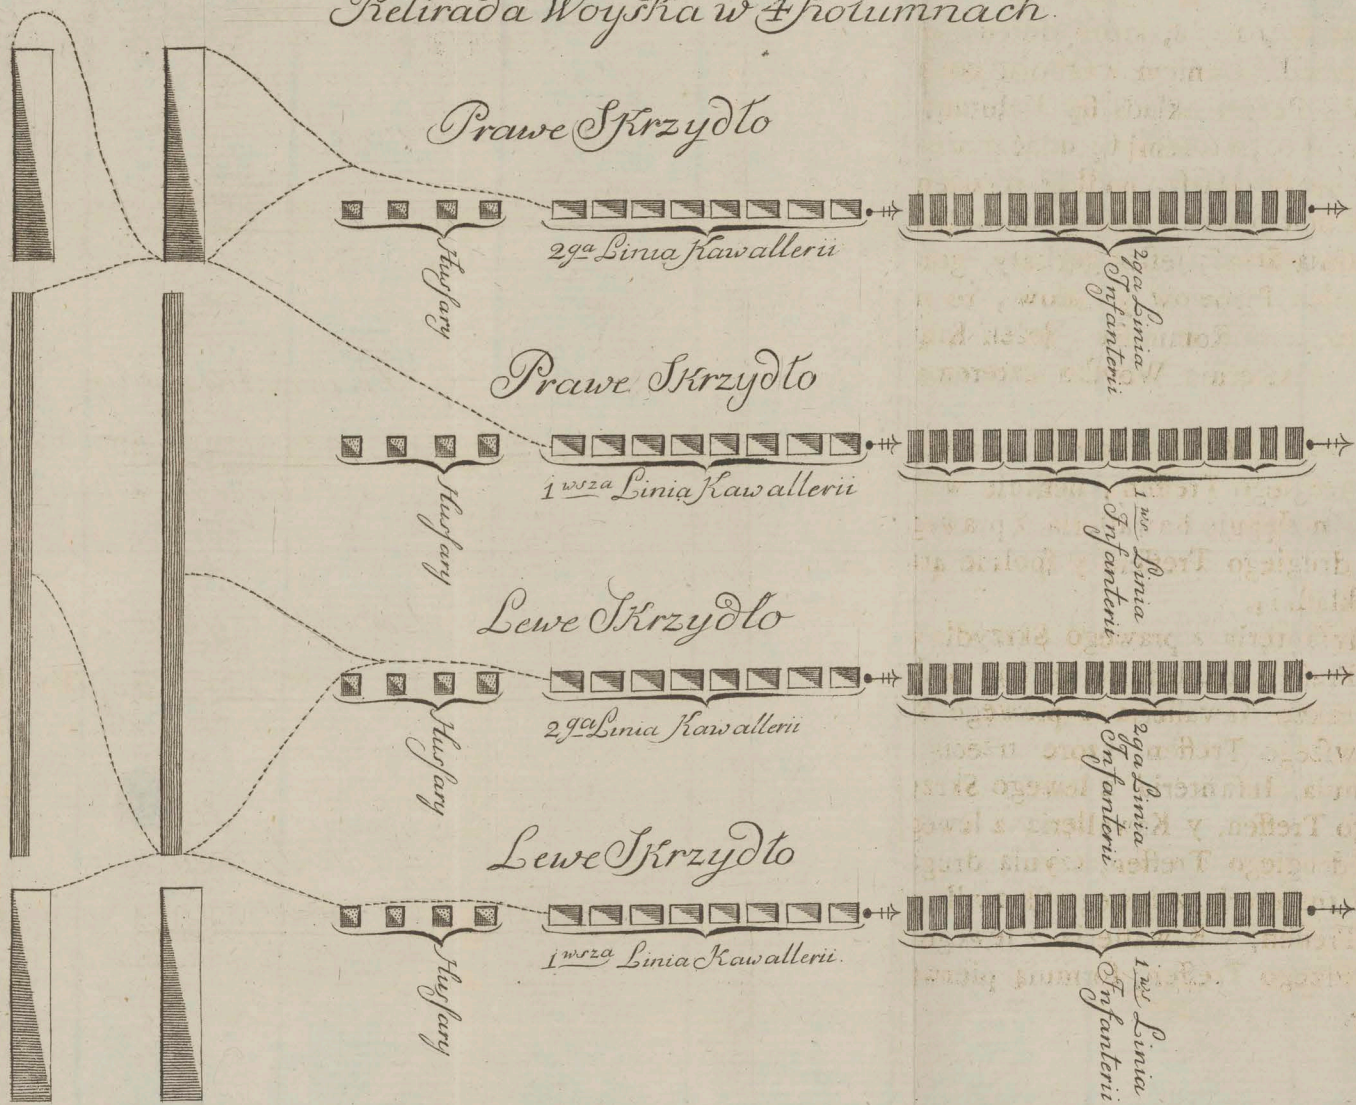 Retirada Woyska w 4 kolumnach.
Prawe Skrzydło
Husſary
2ga Linia Kawallerii
2ga Linia
Infanterii
Prawe Skrzydło
Husſary
1wsza Linia Kawallerii
1ws Linia
Infanterii
Lewe Skrzydło
Husſary
2ga Linia Kawallerii
2ga Linia
Infanterii
Lewe Skrzydło
Husſary
1wsza Linia Kawallerii.
1ws Linia
Infanterii